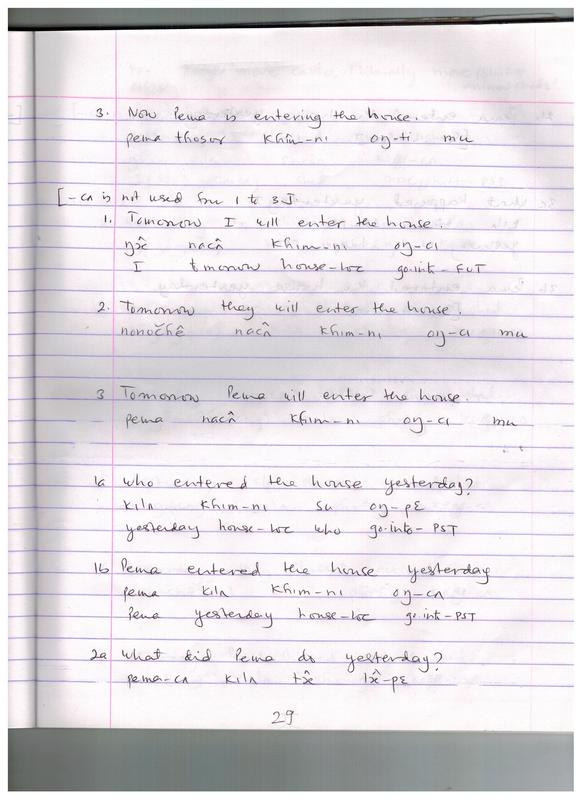 3. Now Pema is entering the house.
pema thosor khîm-nı oŋ-ti mu
[-cʌ is not used for 1 to 3]
1. Tomorrow I will enter the house.
nacʌ̂ khim-nı oŋ-cı
I tomorrow house-loc go.into-FUT
2. Tomorrow they will enter the house.
nonočhê nacʌ̂ khim-nı oŋ-cı mu
3 Tomorrow Pema will enter the house.
pema nacʌ̂ khim-nı oŋ-cı mu
1a who entered the house yesterday?
kılʌ khim-nı su oŋ-pɛ
yesterday house-loc who go.into-PST
1b Pema entered the house yesterday
pema kılʌ khim-nı oŋ-cʌ
Pema yesterday house-loc go.into-PST
2a what did Pema do yesterday?
pema-cʌ kılʌ
29